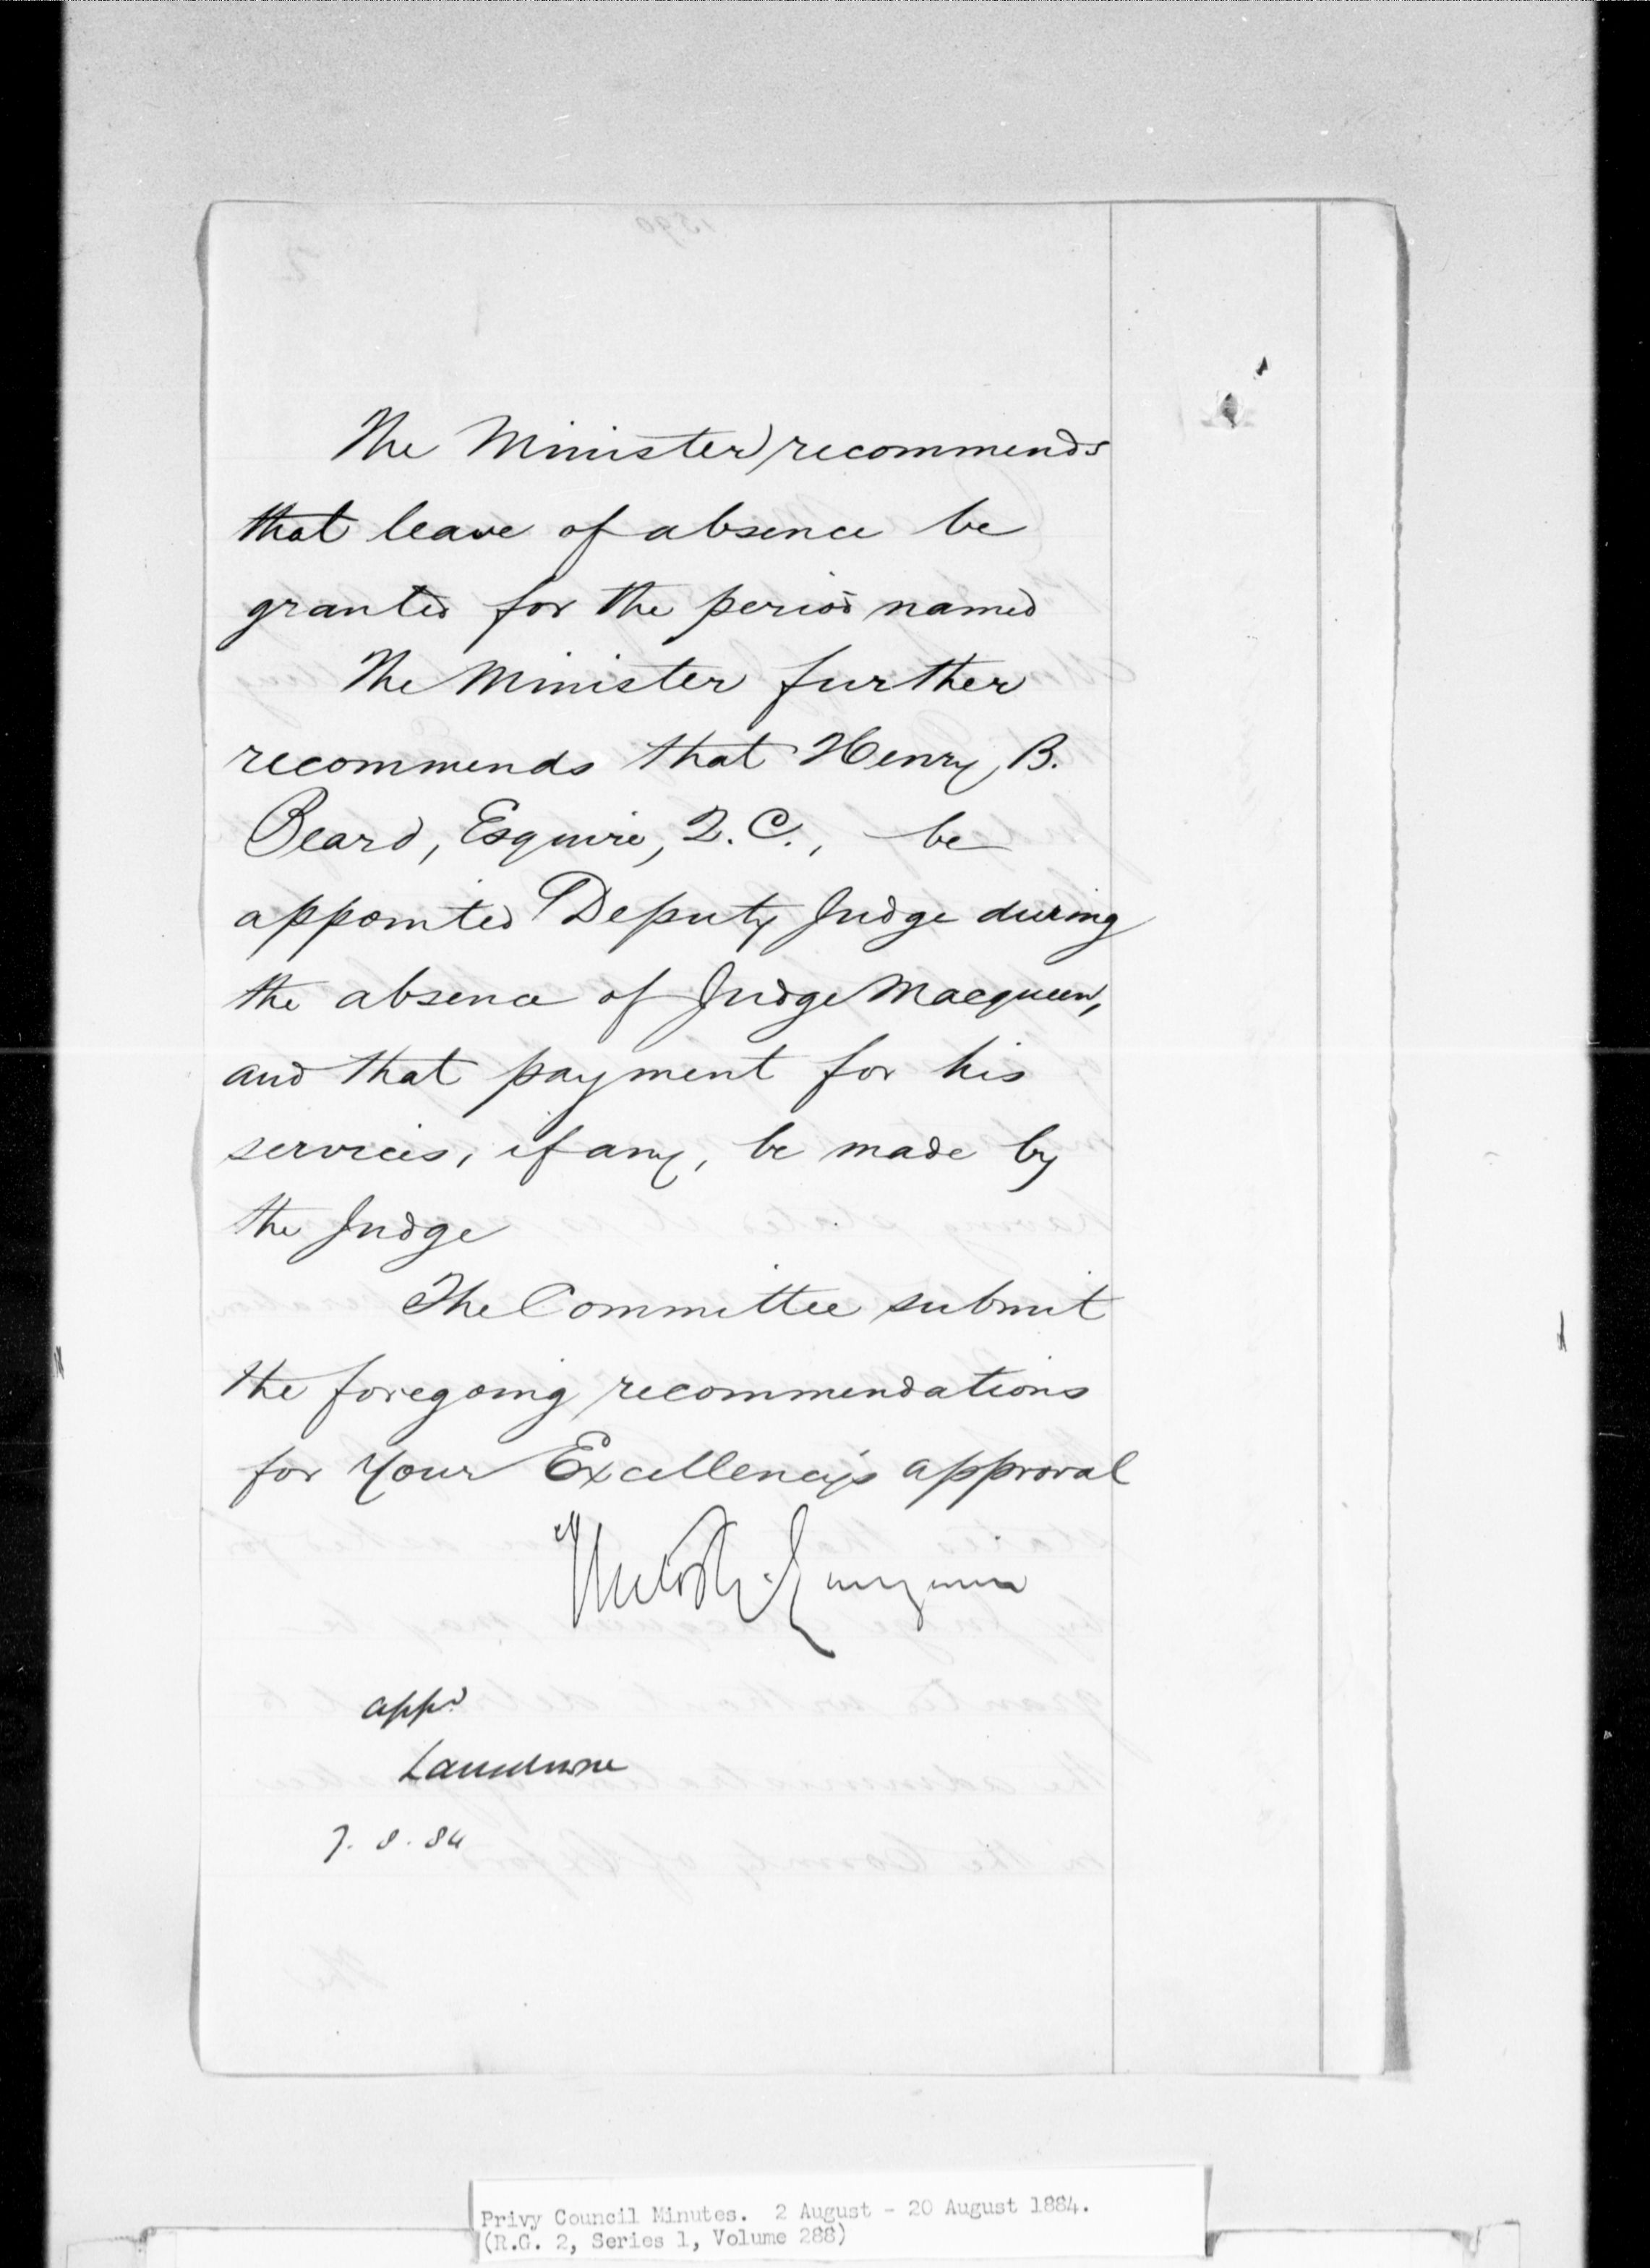 The Minister recommends
that leave of absence be
granted for the period named
The Minister further
recommends that Henry B.
Beard, Esquire, Q.C., be
appointed Deputy Judge during
the absence of Judge Macqueen,
and that payment for his
services, if any, be made by
the Judge
The Committee submit
the foregoing recommendations
for Your Excellency's approval
appd
Lansdowne
7. 8. 84
Privy Council Minutes. 2 August - 20 August 1884.
(R.G. 2, Series 1, Volume 288)